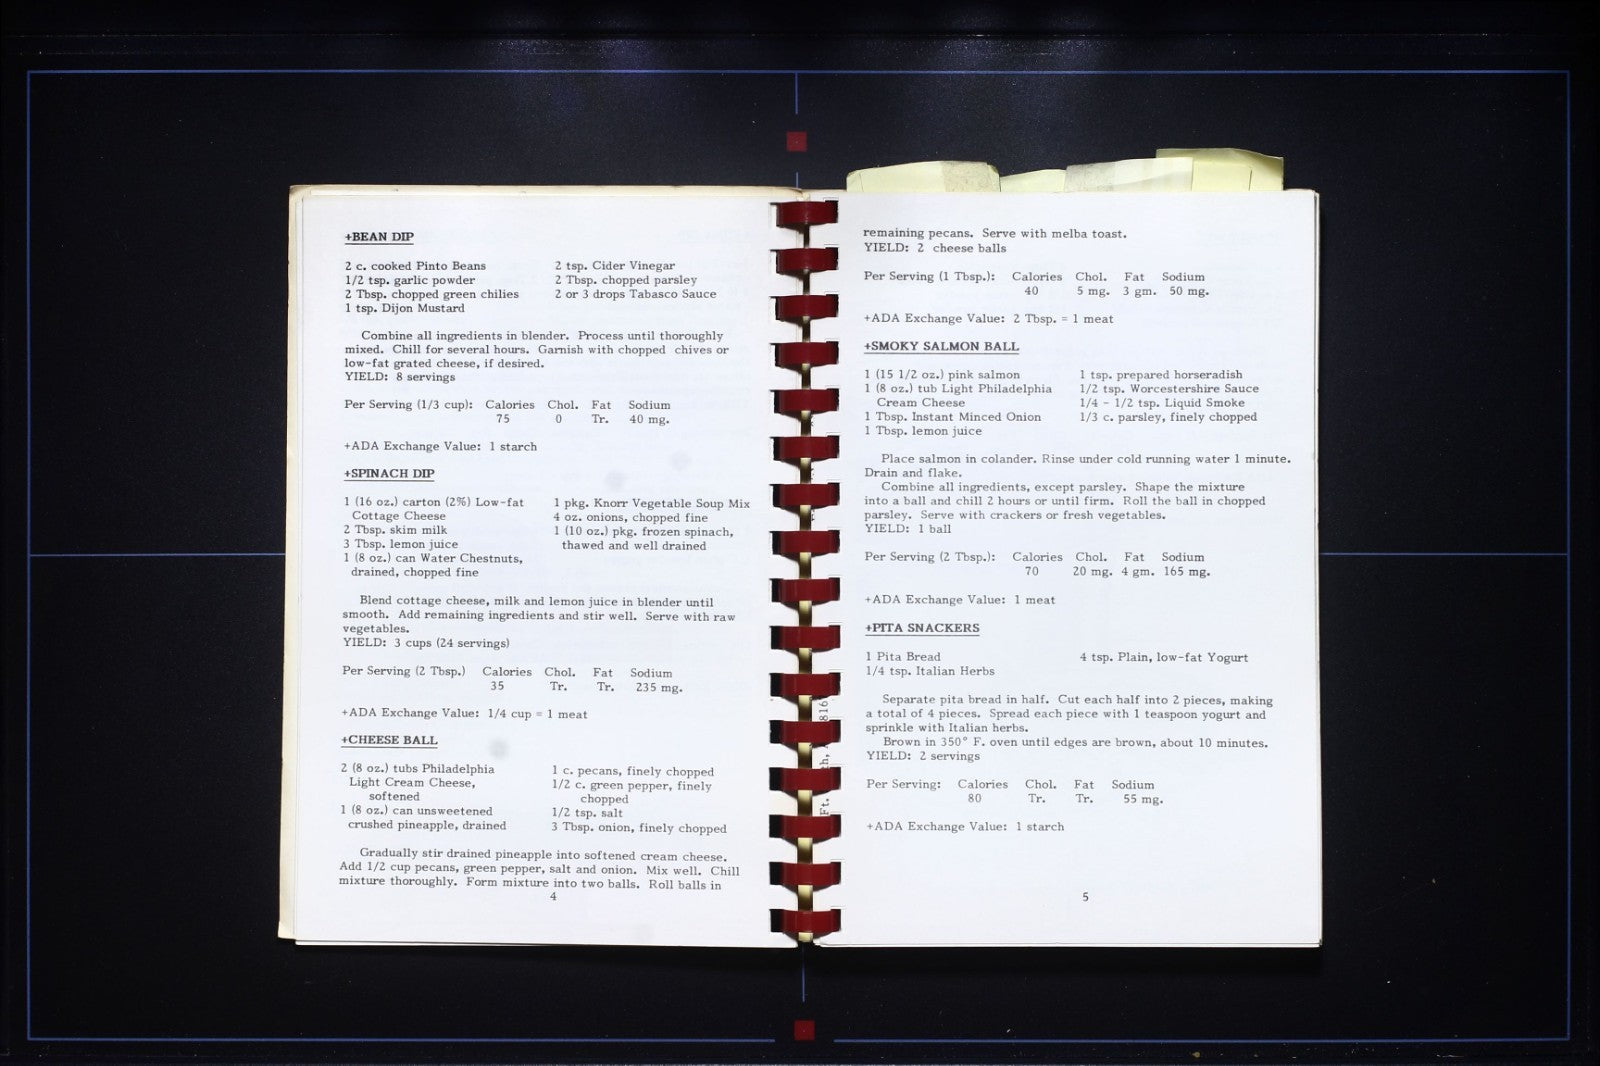 +BEAN DIP
2 c. cooked Pinto Beans
1/2 tsp. garlic powder
2 Tbsp. chopped green chilies
1 tsp. Dijon Mustard
2 tsp. Cider Vinegar
2 Tbsp. chopped parsley
2 or 3 drops Tabasco Sauce
Combine all ingredients in blender. Process until thoroughly
mixed. Chill for several hours. Garnish with chopped chives or
low-fat grated cheese, if desired.
YIELD: 8 servings
Per Serving (1/3 cup): Calories Chol. Fat Sodium
75 0 Tr. 40 mg.
+ADA Exchange Value: 1 starch
+SPINACH DIP
1 (16 oz.) carton (2%) Low-fat
Cottage Cheese
2 Tbsp. skim milk
3 Tbsp. lemon juice
1 (8 oz.) can Water Chestnuts,
drained, chopped fine
1 pkg. Knorr Vegetable Soup Mix
4 oz. onions, chopped fine
1 (10 oz.) pkg. frozen spinach,
thawed and well drained
Blend cottage cheese, milk and lemon juice in blender until
smooth. Add remaining ingredients and stir well. Serve with raw
vegetables.
YIELD: 3 cups (24 servings)
Per Serving (2 Tbsp.) Calories Chol. Fat Sodium
35 Tr. Tr. 235 mg.
+ADA Exchange Value: 1/4 cup = 1 meat
+CHEESE BALL
2 (8 oz.) tubs Philadelphia
Light Cream Cheese,
softened
1 (8 oz.) can unsweetened
crushed pineapple, drained
1 c. pecans, finely chopped
1/2 c. green pepper, finely
chopped
1/2 tsp. salt
3 Tbsp. onion, finely chopped
Gradually stir drained pineapple into softened cream cheese.
Add 1/2 cup pecans, green pepper, salt and onion. Mix well. Chill
mixture thoroughly. Form mixture into two balls. Roll balls in
4
remaining pecans. Serve with melba toast.
YIELD: 2 cheese balls
Per Serving (1 Tbsp.): Calories Chol. Fat Sodium
40 5 mg. 3 gm. 50 mg.
+ADA Exchange Value: 2 Tbsp. = 1 meat
+SMOKY SALMON BALL
1 (15 1/2 oz.) pink salmon
1 (8 oz.) tub Light Philadelphia
Cream Cheese
1 Tbsp. Instant Minced Onion
1 Tbsp. lemon juice
1 tsp. prepared horseradish
1/2 tsp. Worcestershire Sauce
1/4 - 1/2 tsp. Liquid Smoke
1/3 c. parsley, finely chopped
Place salmon in colander. Rinse under cold running water 1 minute.
Drain and flake.
Combine all ingredients, except parsley. Shape the mixture
into a ball and chill 2 hours or until firm. Roll the ball in chopped
parsley. Serve with crackers or fresh vegetables.
YIELD: 1 ball
Per Serving (2 Tbsp.): Calories Chol. Fat Sodium
70 20 mg. 4 gm. 165 mg.
+ADA Exchange Value: 1 meat
+PITA SNACKERS
1 Pita Bread
1/4 tsp. Italian Herbs
4 tsp. Plain, low-fat Yogurt
Separate pita bread in half. Cut each half into 2 pieces, making
a total of 4 pieces. Spread each piece with 1 teaspoon yogurt and
sprinkle with Italian herbs.
Brown in 350° F. oven until edges are brown, about 10 minutes.
YIELD: 2 servings
Per Serving: Calories Chol. Fat Sodium
80 Tr. Tr. 55 mg.
+ADA Exchange Value: 1 starch
5
Ft.